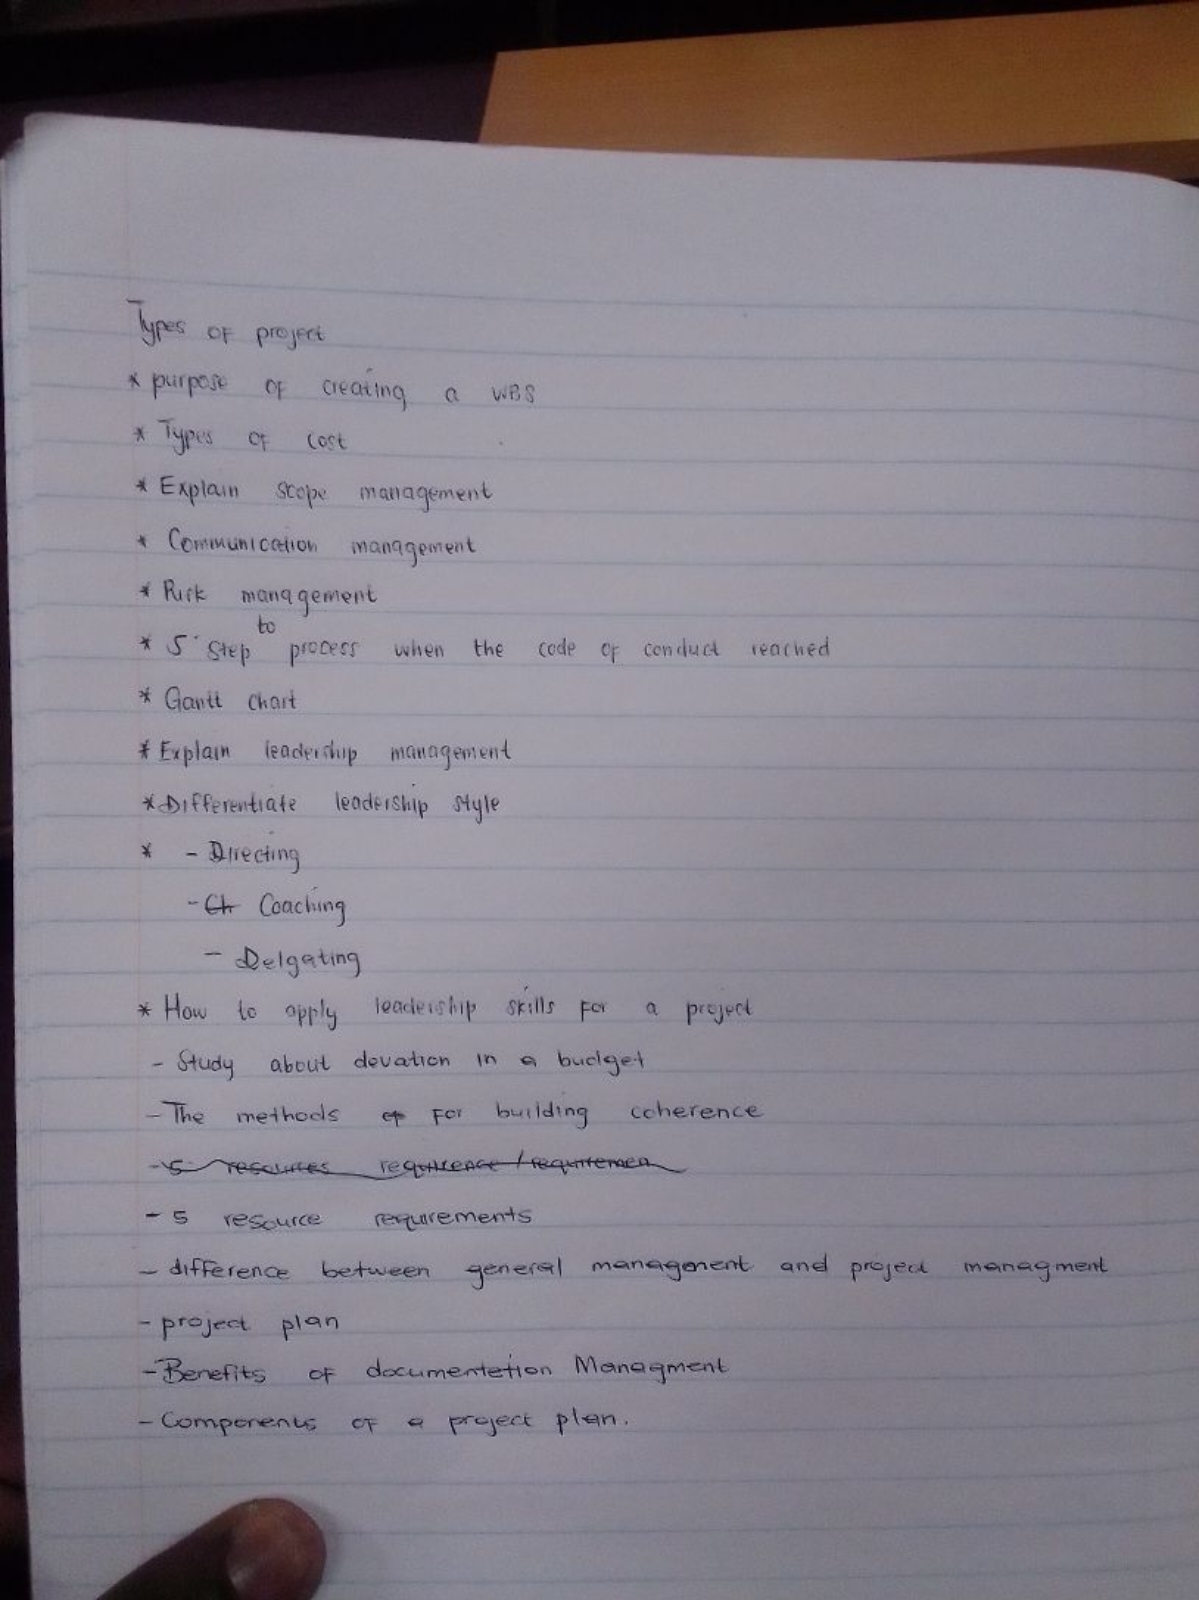 Types of project
* purpose of creating a WBS
* Types of cost
* Explain scope management
* Communication management
* Risk management
to
* 5 Step process when the code of conduct reached
* Gantt chart
* Explain leadership management
* Differentiate leadership style
* - Directing
- Coaching
- Delgating
* How to apply leadership skills for a project
- Study about devation in a budget
- The methods for building coherence
- 5 resources requirence / requiremen
- 5 resource requirements
- difference between general management and project managment
- project plan
- Benefits of documentetion Managment
- Components of a project plan.